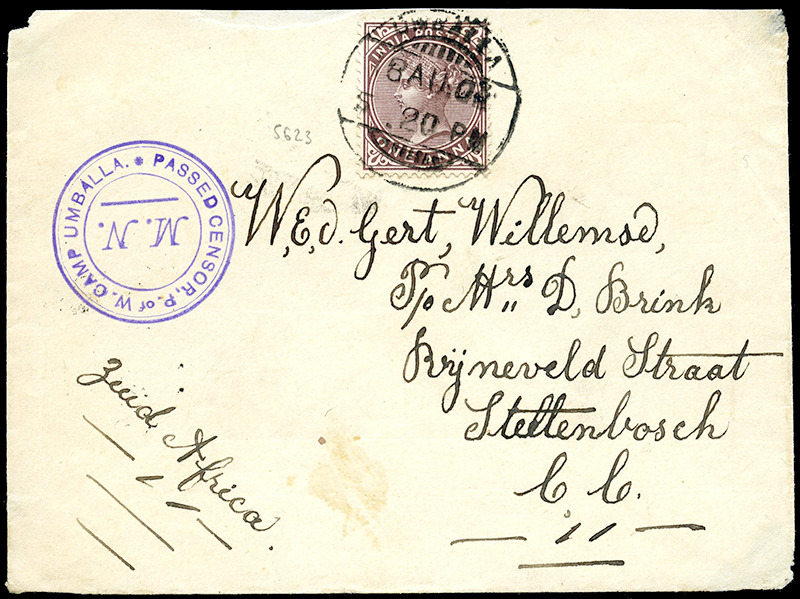 UMBALLA
INDIA POSTAGE
8 AU.02
.20 PM
ONE ANNA
5623
PASSED CENSOR, P. of W. CAMP UMBALLA.
M. N.
W,E,d. Gert, Willemse,
P/o Mrs D, Brink
Rijneveld Straat
Stellenbosch
C C.
Zuid Africa.